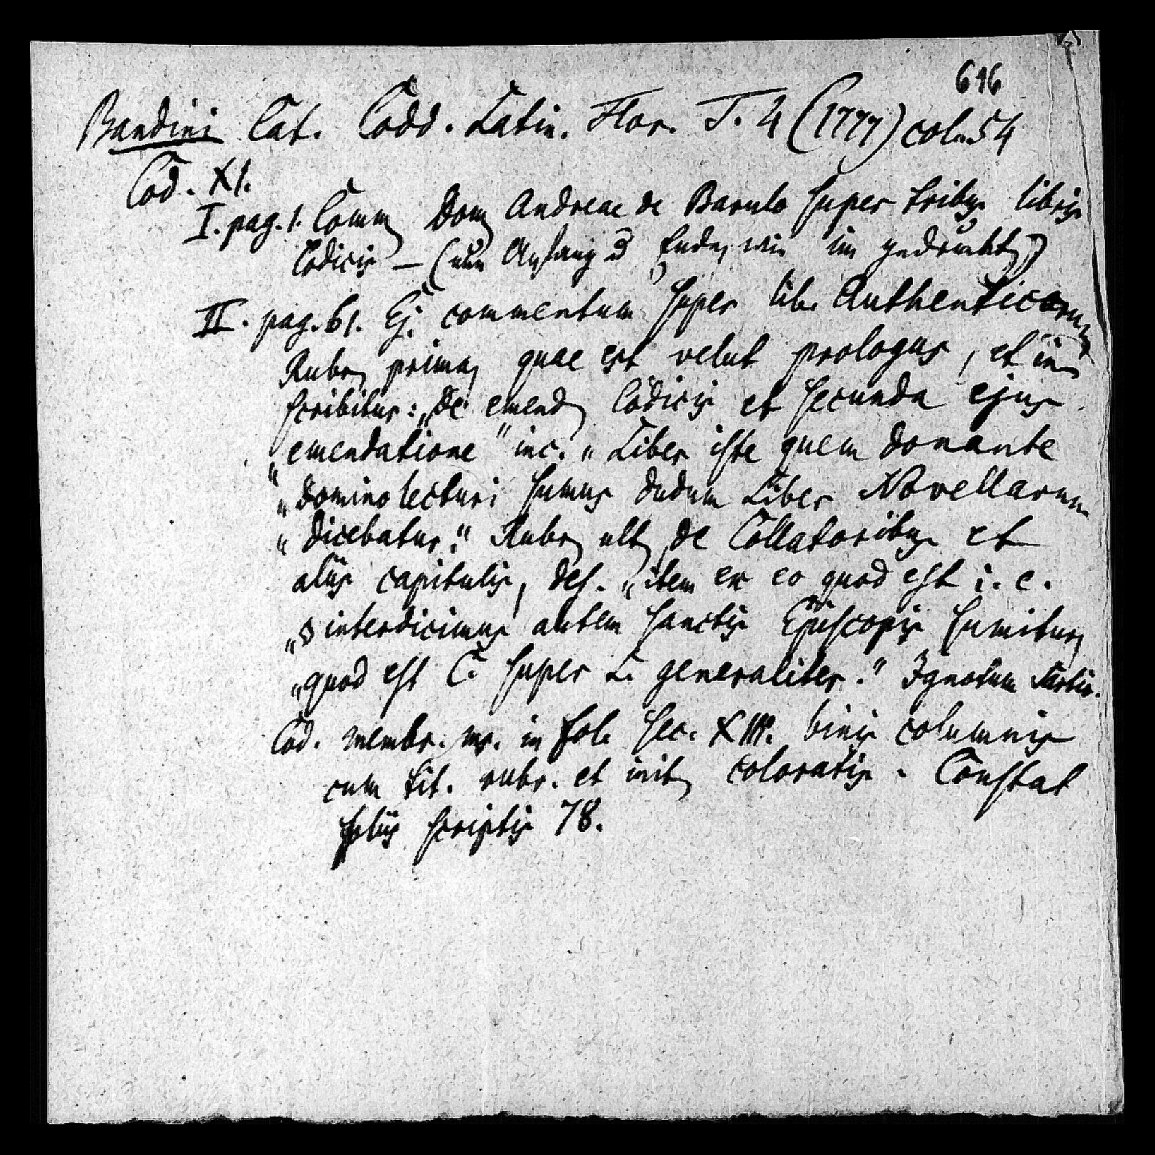 616
Bandini Cat. Codd. Latin. Flor. T. 4 (1777) col. 54
Cod. XI.
I. pag. 1. Comm Dom Andreae de Barulo super tribus libris
Codicis — (nun Anfang u Ende, wie im gedruckt)
II. pag. 61. Ej. commentum super lib. Authenticorum
Rubr prima, quae est velut prologus, et in
scribitur: „de emend Codicis et secunda ejus
emendatione" inc. „Liber iste quem donante
„domino lecturi sumus dudum Liber Novellarum
„dicebatur." Rubr ult de Collatoribus et
aliis capitulis, des. „item ex eo quod est i. c.
„s interdicimus autem sanctis Episcopis sumitur
„quod est C. super L. generaliter." Ignotum
Cod. membr. ms. in fol. sec. XIII. binis columnis
cum tit. rubr. et init coloratis. Constat
foliis scriptis 78.